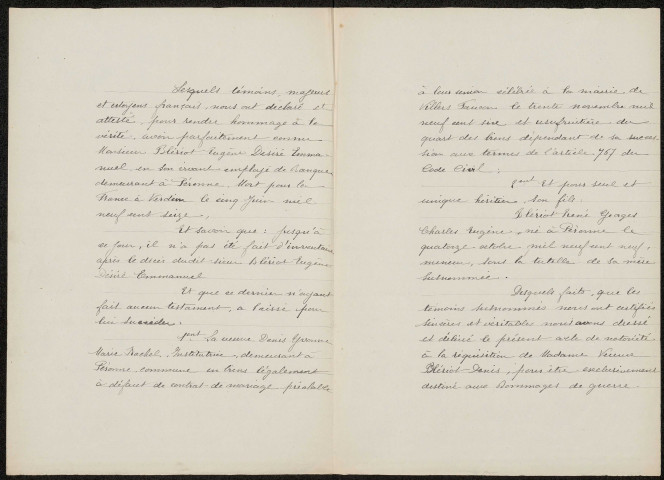 Lesquels témoins, majeurs
et citoyens français, nous ont déclaré et
attesté, pour rendre hommage à la
vérité, avoir parfaitement connu
Monsieur Blériot Eugène Désiré Emma-
nuel, en son vivant employé de banque
demeurant à Péronne, Mort pour la
France à Verdun le cinq Juin mil
neuf cent seize.
Et savoir que: jusqu'à
ce jour, il n'a pas été fait d'inventaire
après le décès dudit sieur Blériot Eugène
Désiré Emmanuel
Et que ce dernier n'ayant
fait aucun testament, a laissé pour
lui succéder.
1ent La veuve, Denis Yvonne
Marie Rachel, Institutrice, demeurant à
Péronne commune en biens légalement
à défaut de contrat de mariage préalable
à leur union célébrée à la mairie de
Villers Faucon le trente novembre mil
neuf cent six et usufruitière du
quart des biens dépendant de sa succes
sion aux termes de l'article 767 du
Code Civil;
2ent Et pour seul et
unique héritier, son fils.
Blériot René Georges
Charles Eugène, né à Péronne le
quatorze octobre mil neuf cent neuf,
mineur, sous la tutelle de sa mère
susnommée.
Desquels faits, que les
témoins susnommés nous ont certifiés
sincères et véritables nous avons dressé
et délivré le présent acte de notoriété
à la réquisition de Madame Veuve
Blériot-Denis, pour être exclusivement
destiné aux Dommages de guerre.